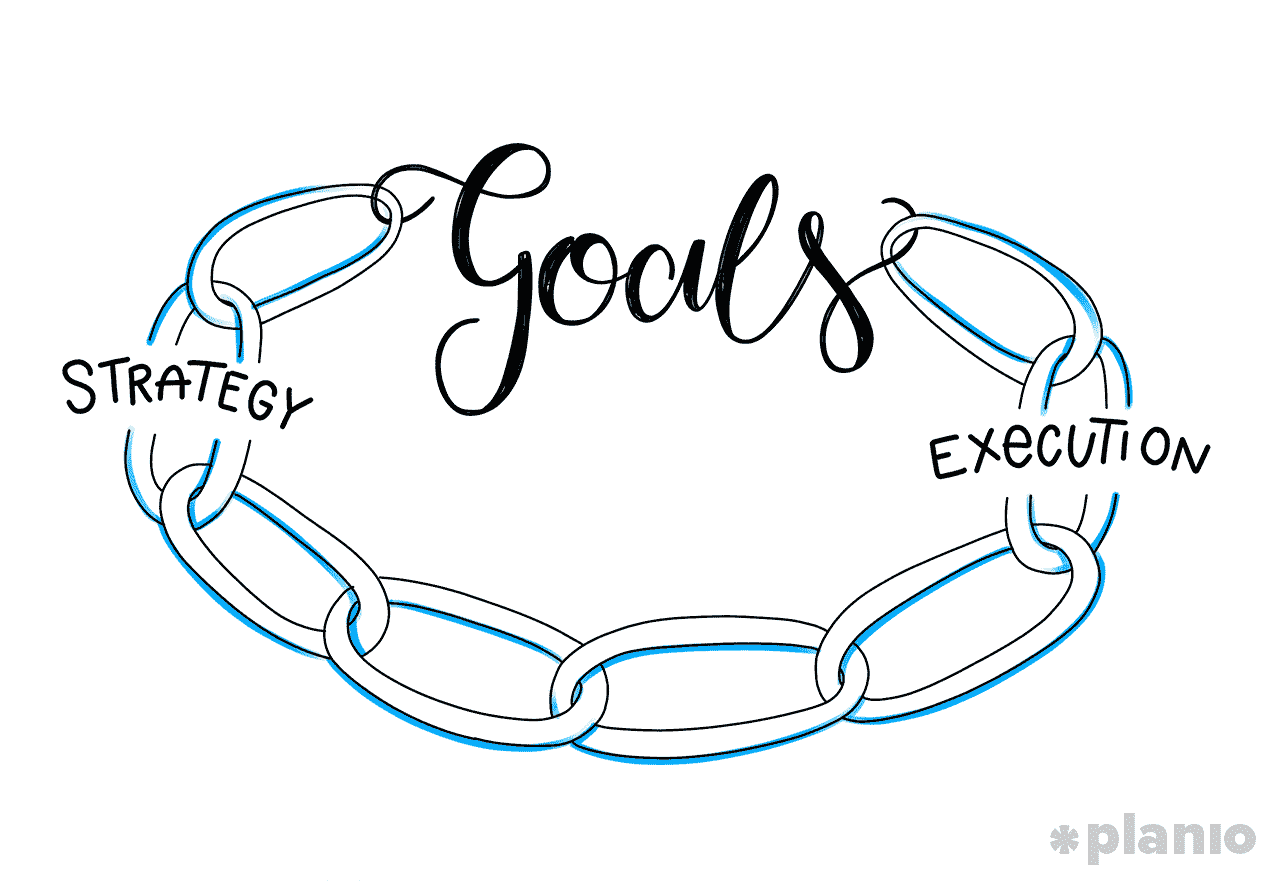 Goals
STRATEGY
EXECUTION
*planio